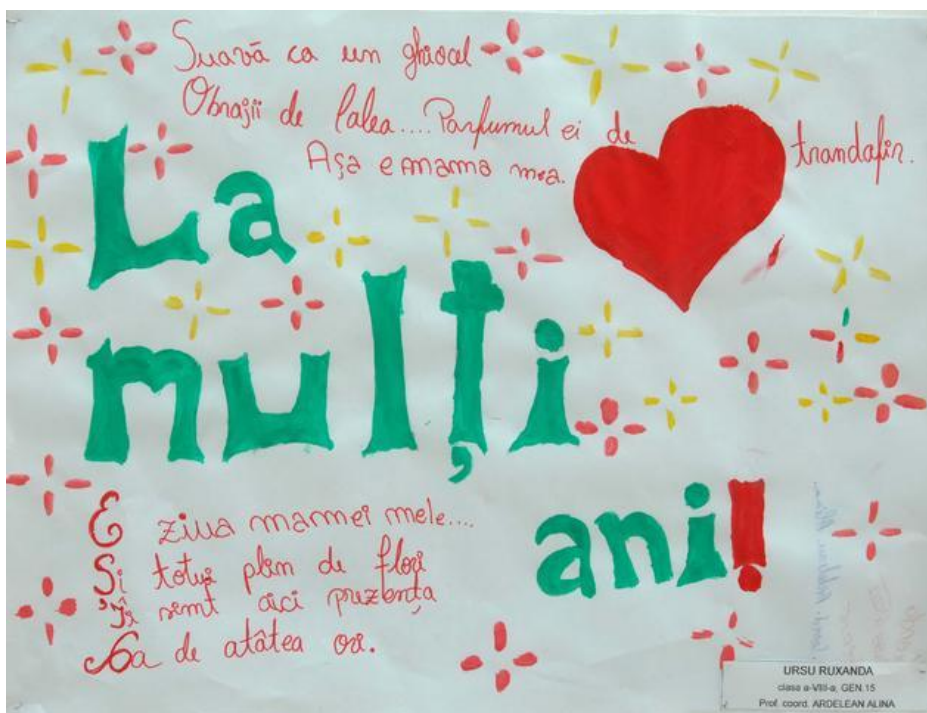 Suavă ca un ghiocel
Obrajii de lalea.... Parfumul ei de trandafir.
Așa e mama mea.
La
mulți
ani!
E ziua mamei mele....
Și totuși plin de flori
Îți simt aici prezența
Ca de atâtea ori.
URSU RUXANDA
clasa a-VIII-a, GEN.15
Prof. coord. ARDELEAN ALINA